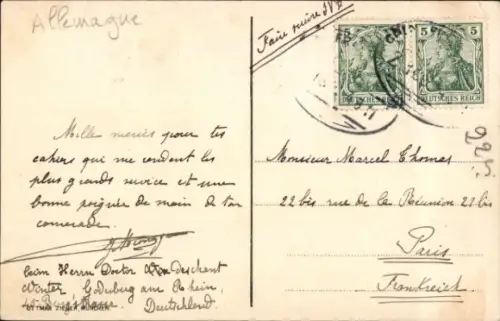 Allemagne
Faire suivre SVP
5
5
DEUTSCHES REICH
DEUTSCHES REICH
Mille mercis pour tes
cahiers qui me rendent les
plus grands service et une
bonne poignée de main de ton
camarade.
beim Herrn Doctor
Winter Godesberg am Rhein,
Deutschland.
OTTMAR ZIEHER, MÜNCHEN
Monsieur Marcel Thomas
22 bis rue de la Réunion 21 bis
Paris
Frankreich